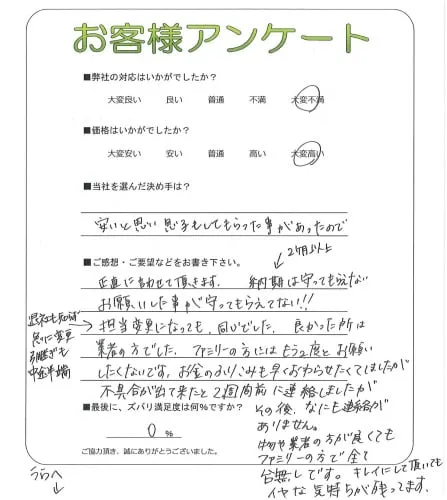 お客様アンケート
■弊社の対応はいかがでしたか？
大変良い 良い 普通 不満 大変不満
■価格はいかがでしたか？
大変安い 安い 普通 高い 大変高い
■当社を選んだ決め手は？
安いと思い 息子もしてもらった事があったので
2ヶ月以上
■ご感想・ご要望などをお書き下さい。
正直に言わせて頂きます。 納期は守ってもらえない
お願いした事が守ってもらえてない!!
急に変更
担当変更になっても、同じでした。良かった所は
業者の方でした。ファミリーの方にはもう2度とお願い
したくないです。お金のふりこみも早く終わらせたくてしましたが
不具合が出て来たと2週間前に連絡しましたが
■最後に、ズバリ満足度は何％ですか？
その後、なにも連絡が
ありません。
0 ％
物や業者の方が良くても
ファミリーの方で全て
ご協力頂き、誠にありがとうございました。
台無しです。キレイにして頂いても
イヤな気持ちが残ってます。
うらへ